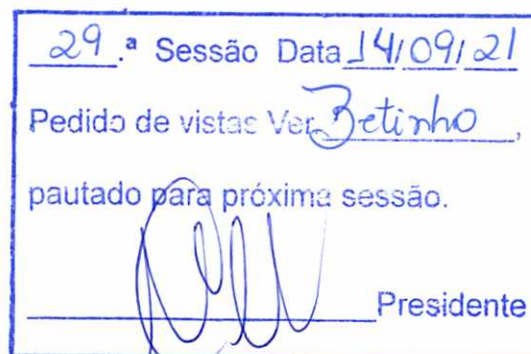 29.ª Sessão Data 14/09/21
Pedido de vistas Ver Betinho,
pautado para próxima sessão.
Presidente